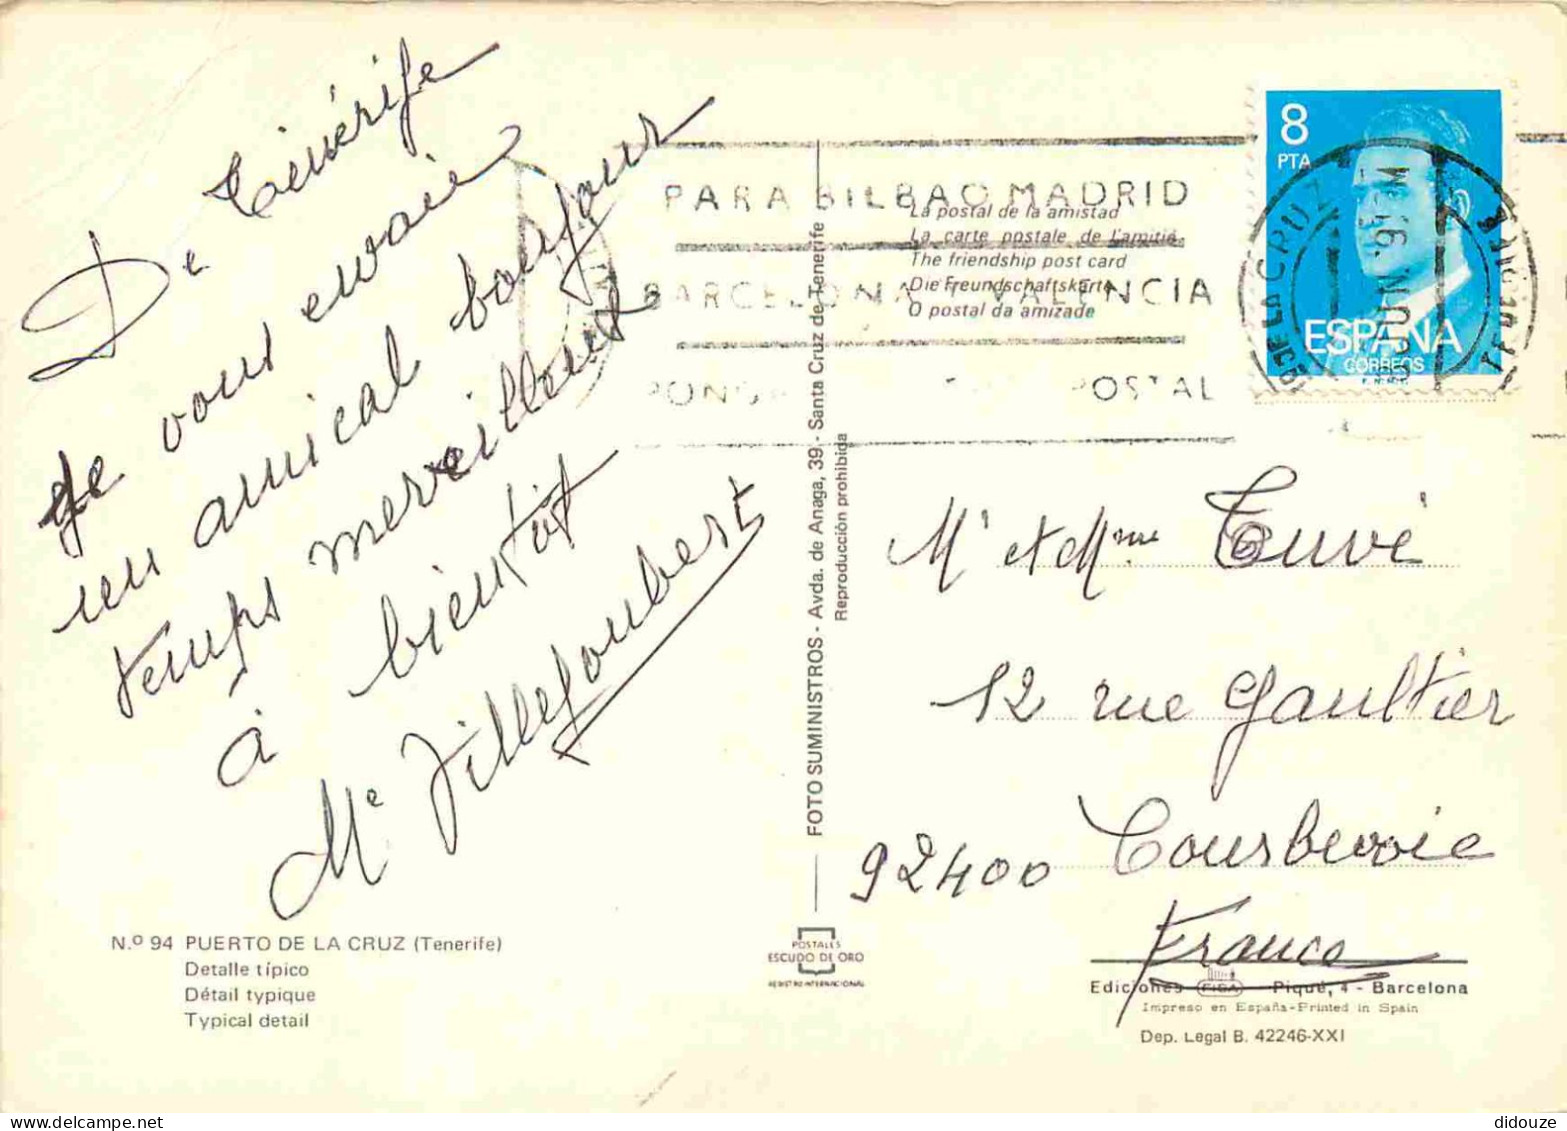 De Ténérife
Je vous envoie
un amical bonjour
temps merveilleux
à bientôt
Me Villejoubert
N.º 94 PUERTO DE LA CRUZ (Tenerife)
Detalle típico
Détail typique
Typical detail
FOTO SUMINISTROS - Avda. de Anaga, 39 - Santa Cruz de Tenerife
Reproducción prohibida
POSTALES
ESCUDO DE ORO
REGISTRO INTERNACIONAL
PARA BILBAO MADRID
BARCELONA Y VALENCIA
POSTAL
La postal de la amistad
La carte postale de l'amitié
The friendship post card
Die Freundschaftskarte
O postal da amizade
8
PTA
ESPAÑA
CORREOS
F.N.M.T.
DE LA CRUZ
Mr et Mme Touvé
12 rue Gaultier
92400 Courbevoie
France
Ediciones FISA Piqué, 4 - Barcelona
Impreso en España-Printed in Spain
Dep. Legal B. 42246-XXI
didouze